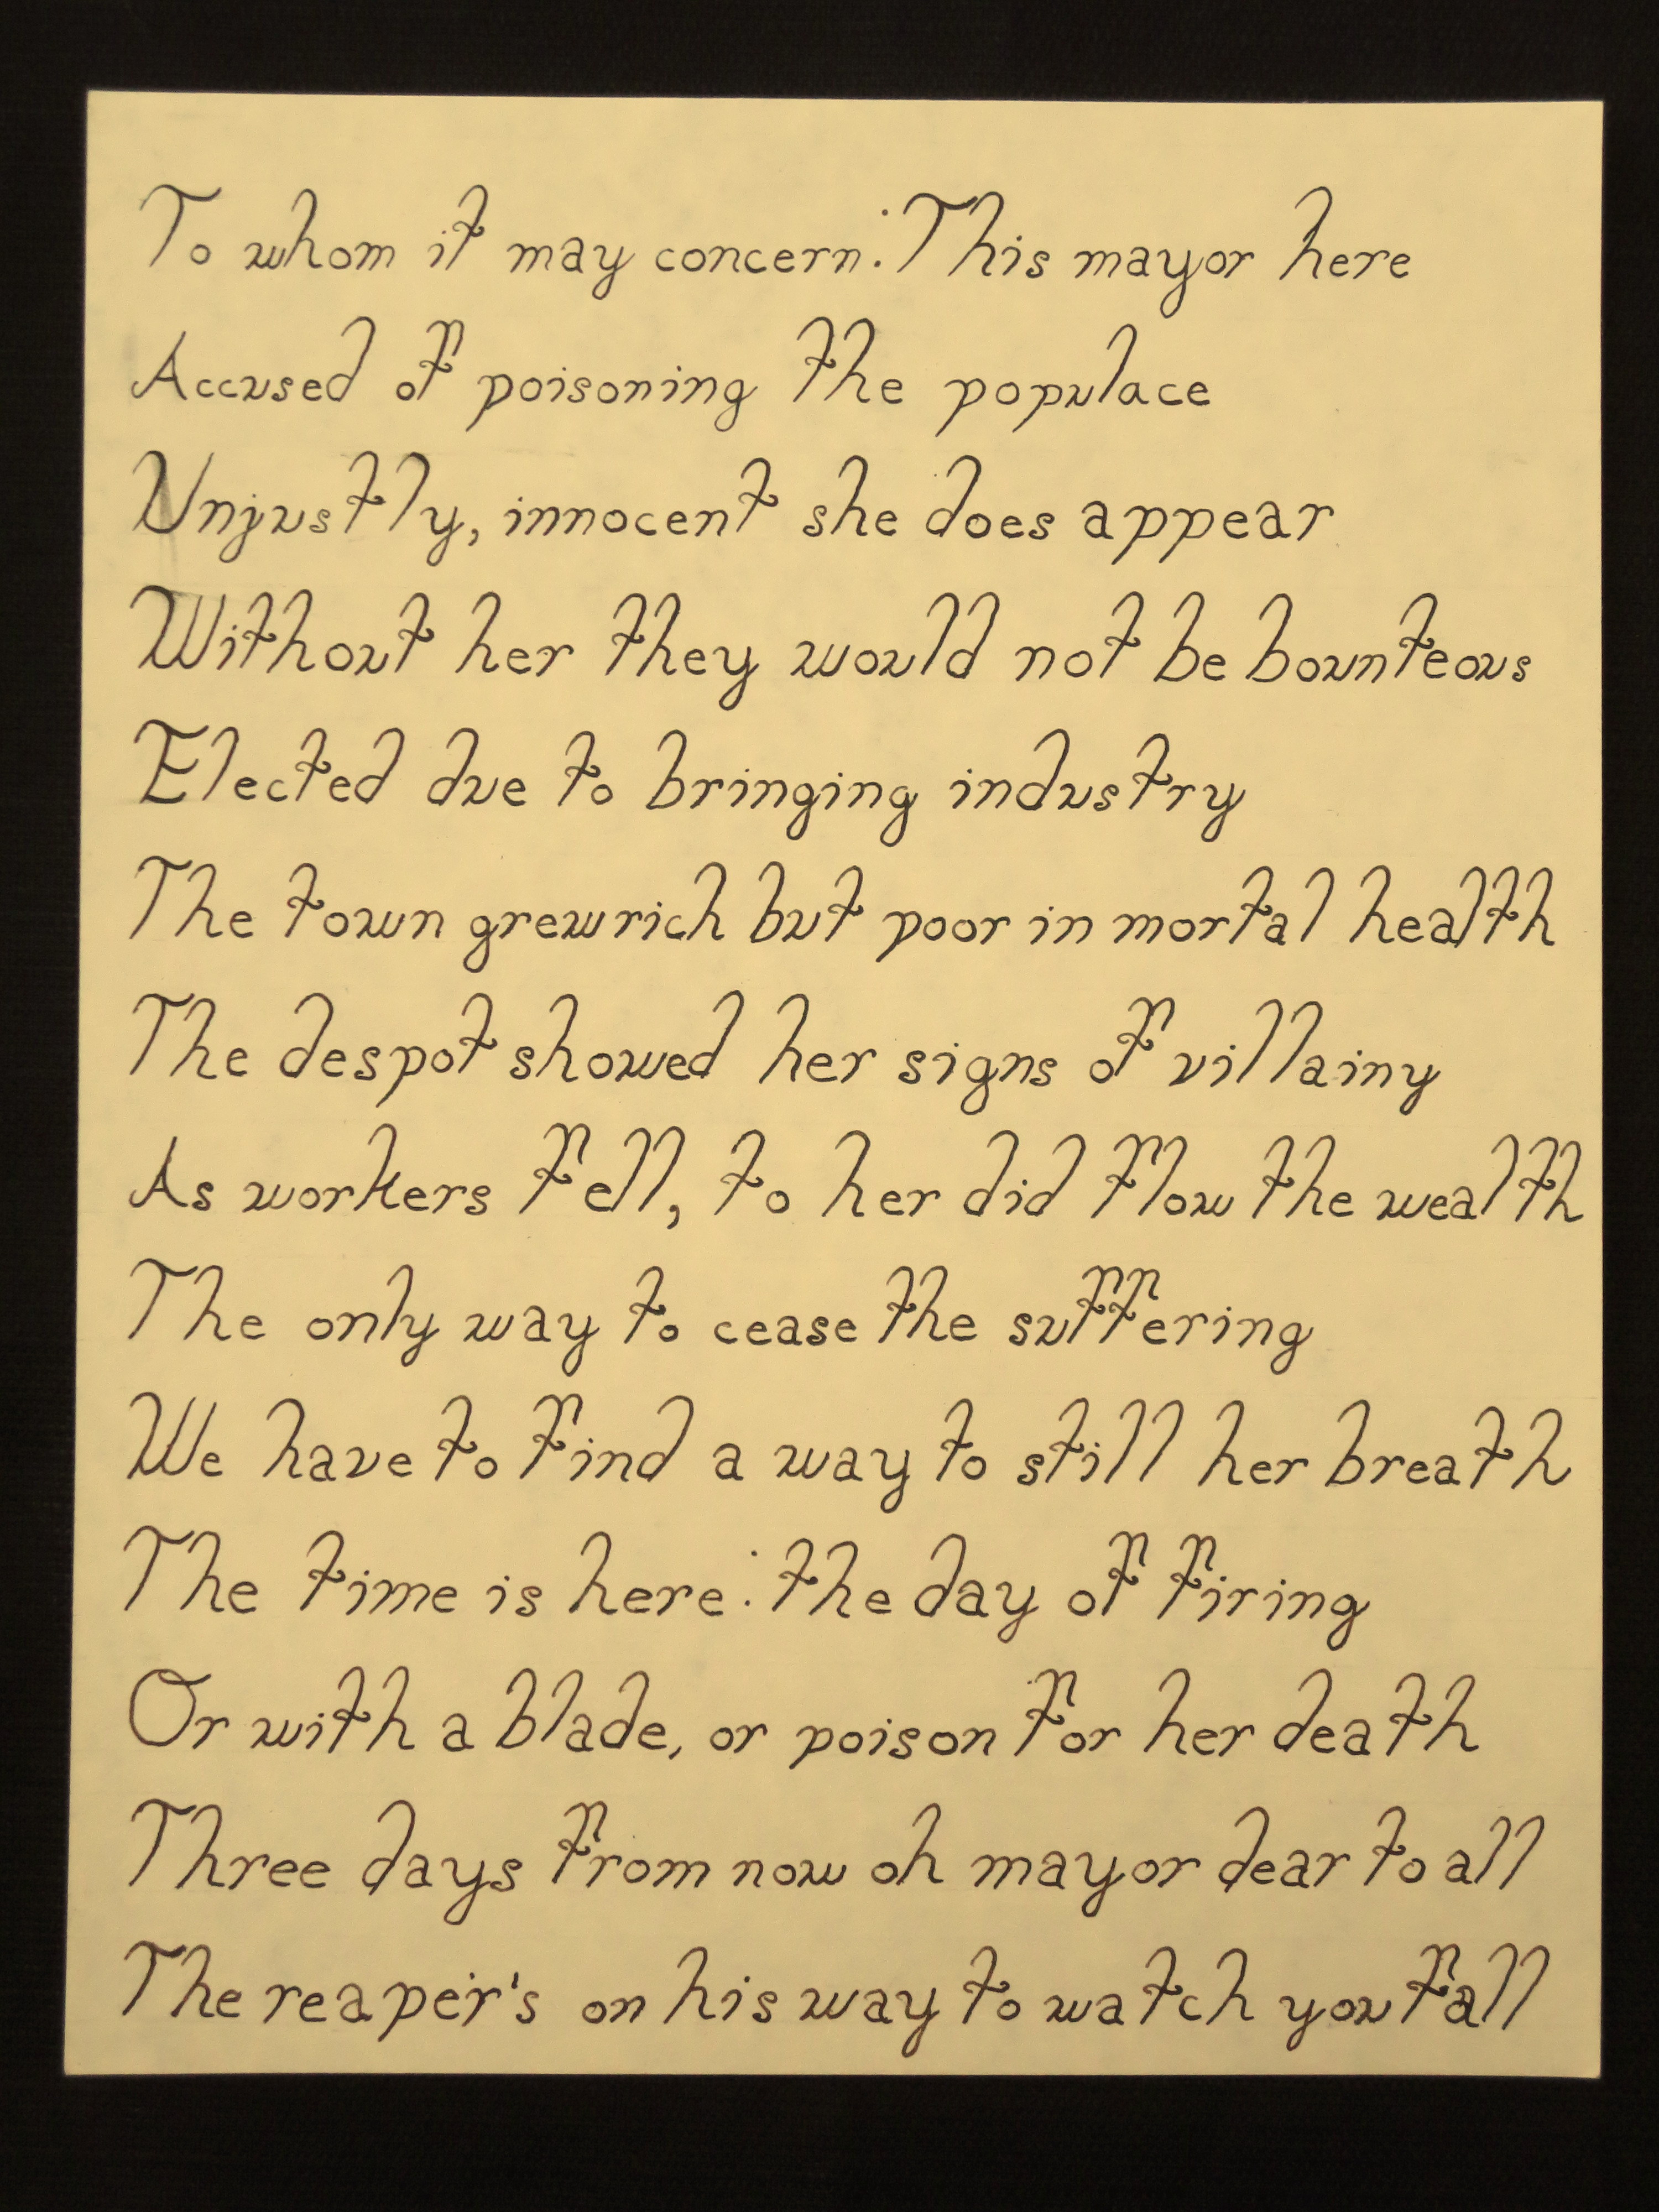 To whom it may concern: This mayor here
Accused of poisoning the populace
Unjustly, innocent she does appear
Without her they would not be bounteous
Elected due to bringing industry
The town grew rich but poor in mortal health
The despot showed her signs of villainy
As workers fell, to her did flow the wealth
The only way to cease the suffering
We have to find a way to still her breath
The time is here: the day of firing
Or with a blade, or poison for her death
Three days from now oh mayor dear to all
The reaper's on his way to watch you fall